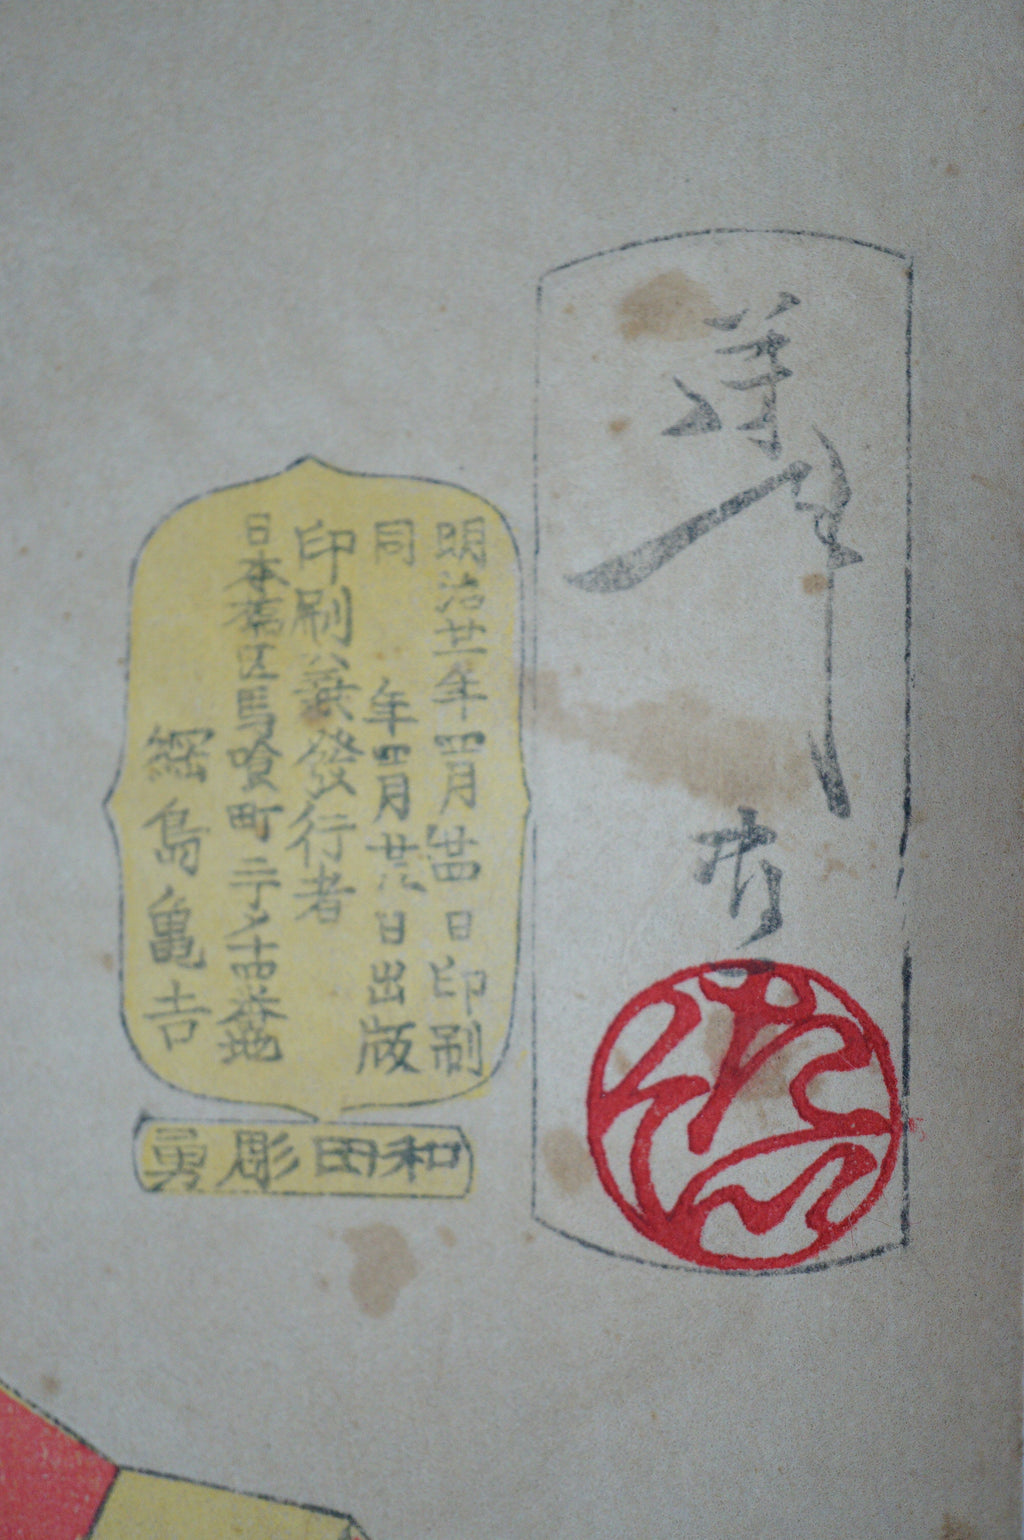 芳年
明治廿一年四月廿四日印刷
同年四月廿八日出版
印刷兼發行者
日本橋区馬喰町二丁メ十四番地
綱島亀吉
和田彫勇